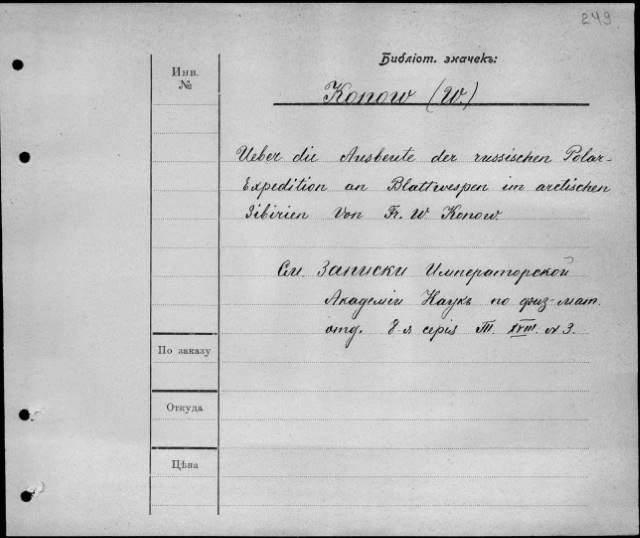 249
Библіот. значекъ:
Инв.
№
Konow (W.)
Ueber die Ausbeute der russischen Polar-
Expedition an Blattwespen im arctischen
Sibirien von Fr. W. Konow.
См. Записки Императорской
Академіи Наукъ по физ-мат.
отд. 8-я серія Т. XVIII. N 3.
По заказу
Откуда
Цѣна